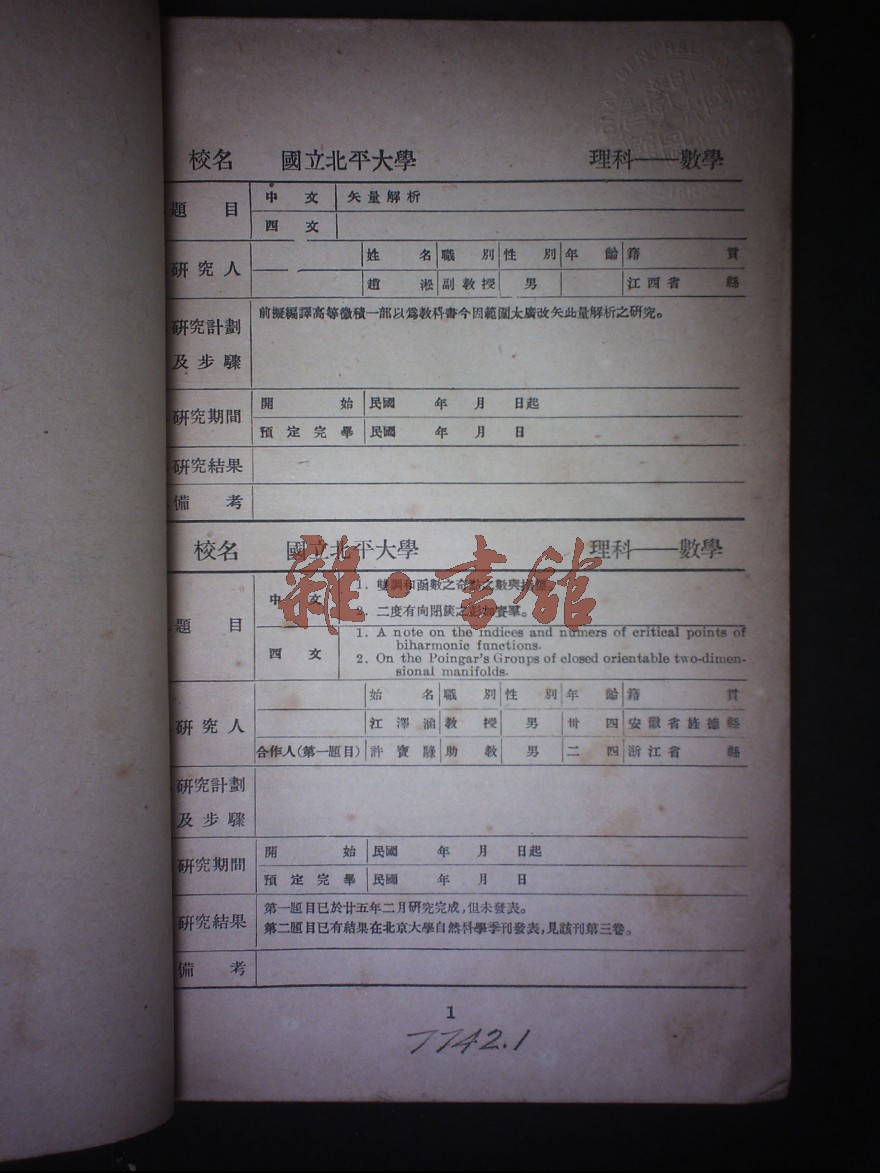 校名 國立北平大學 理科——數學
題目 中文 矢量解析
西文
研究人 姓名 職別 性別 年齡 籍貫
趙淞 副教授 男 江西省 縣
研究計劃及步驟 前擬編譯高等微積一部以爲教科書今因範圍太廣改矢此量解析之研究。
研究期間 開始 民國 年 月 日起
預定完畢 民國 年 月 日
研究結果
備考
校名 國立北平大學 理科——數學
題目 中文 1. 雙調和函數之奇點之數與
2. 二度有向閉簇之羣。
西文 1. A note on the indices and numers of critical points of
biharmonic functions.
2. On the Poingar's Groups of closed orientable two-dimen-
sional manifolds.
研究人 始名 職別 性別 年齡 籍貫
江澤涵 教授 男 卅四 安徽省旌德縣
合作人(第一題目) 許寶騄 助教 男 二四 浙江省 縣
研究計劃及步驟
研究期間 開始 民國 年 月 日起
預定完畢 民國 年 月 日
研究結果 第一題目已於廿五年二月研究完成,但未發表。
第二題目已有結果在北京大學自然科學季刊發表,見該刊第三卷。
備考
1
7742.1
雜·書館